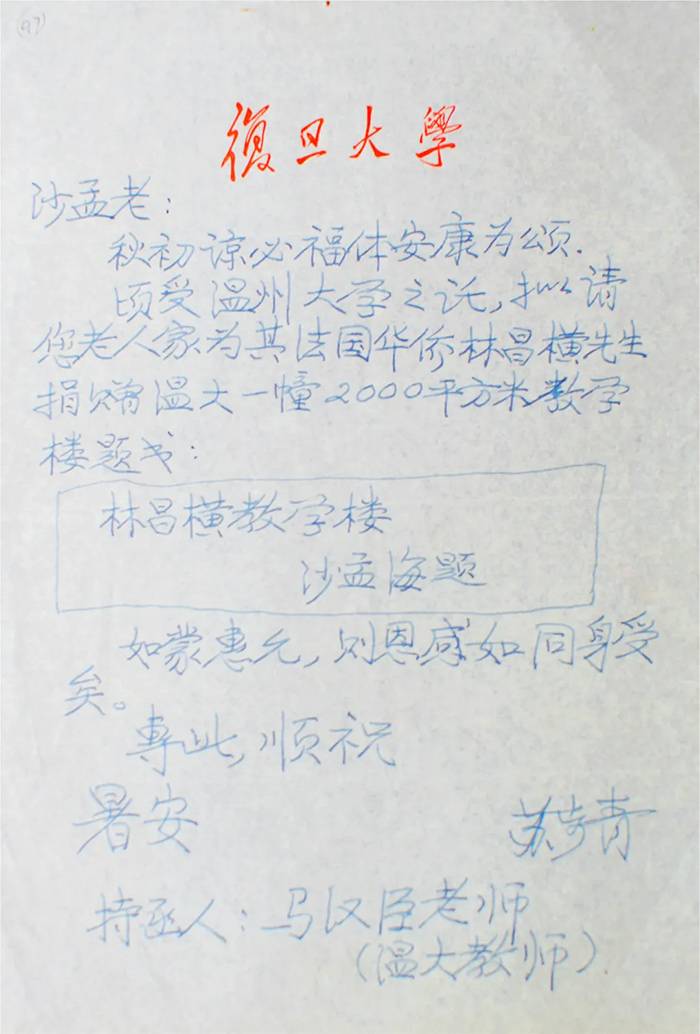 (97)
復旦大學
沙孟老：
秋初谅必福体安康为颂.
顷受温州大学之托，拟请
您老人家为其法国华侨林昌横先生
捐赠温大一幢2000平方米教学
楼题书：
林昌横教学楼
沙孟海题
如蒙惠允，则恩感如同身受
矣。
專此，顺祝
暑安
苏步青
持函人：马汉臣老师
（温大教师）